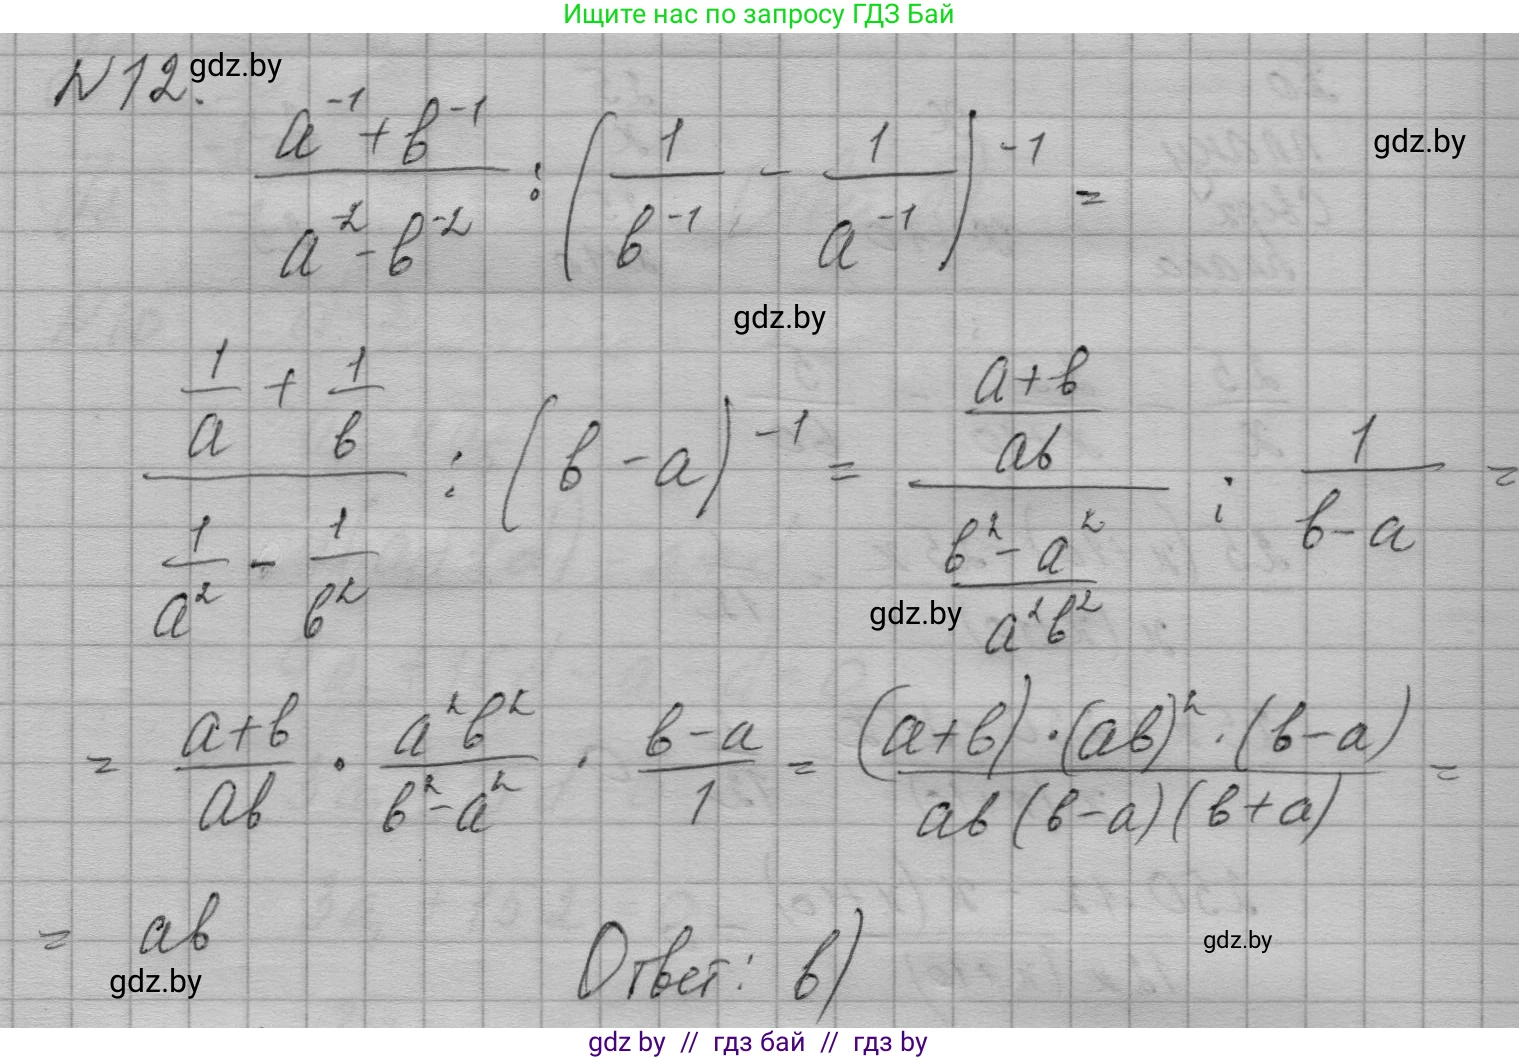 Ищите нас по запросу ГДЗ Бай
N12. gdz.by
(a⁻¹+b⁻¹)/(a⁻²-b⁻²) : (1/b⁻¹ - 1/a⁻¹)⁻¹ =
gdz.by
gdz.by
(1/a + 1/b)/(1/a² - 1/b²) : (b-a)⁻¹ = ((a+b)/ab)/((b²-a²)/a²b²) : 1/(b-a) =
gdz.by
= (a+b)/ab · a²b²/(b²-a²) · (b-a)/1 = ((a+b)·(ab)²·(b-a))/(ab(b-a)(b+a)) =
= ab Ответ: в)
gdz.by
gdz.by
gdz by // гдз бай // гдз by